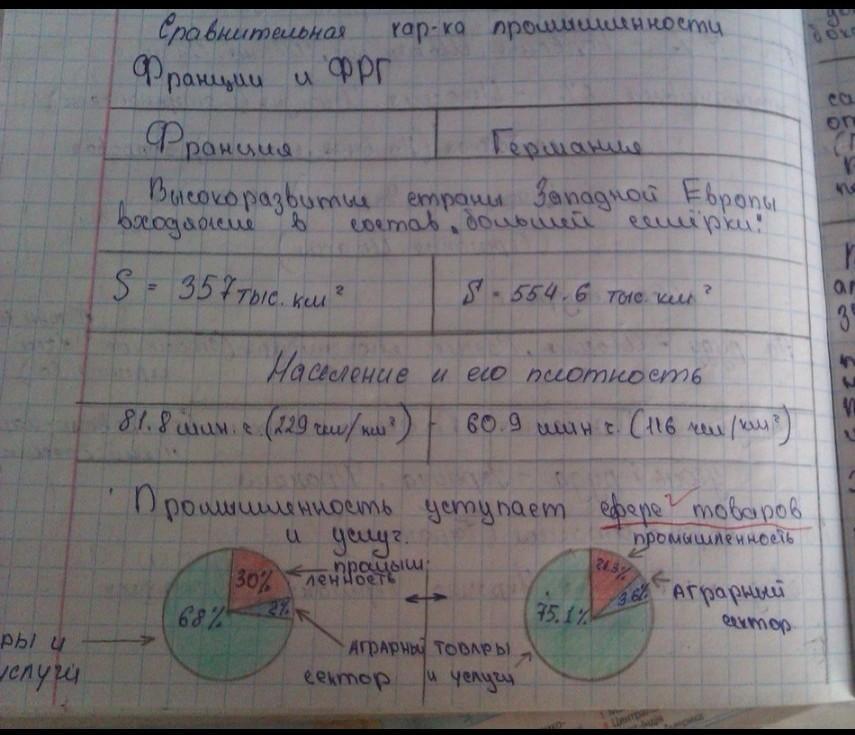 Сравнительная хар-ка промышленности
Франции и ФРГ
Франция Германия
Высокоразвитые страны Западной Европы
входящие в состав "большей семёрки"
S = 357 тыс. км²
S - 554.6 тыс. км²
Население и его плотность
81.8 млн. ч. (229 чел/км²) - 60.9 млн ч. (116 чел/км²)
Промышленность уступает сфере товаров
и услуг.
промыш-
ленность
30%
2%
68%
ры и
услуги
аграрный
сектор
промышленность
21.3%
3.6%
75.1%
аграрный
сектор
товары
и услуги